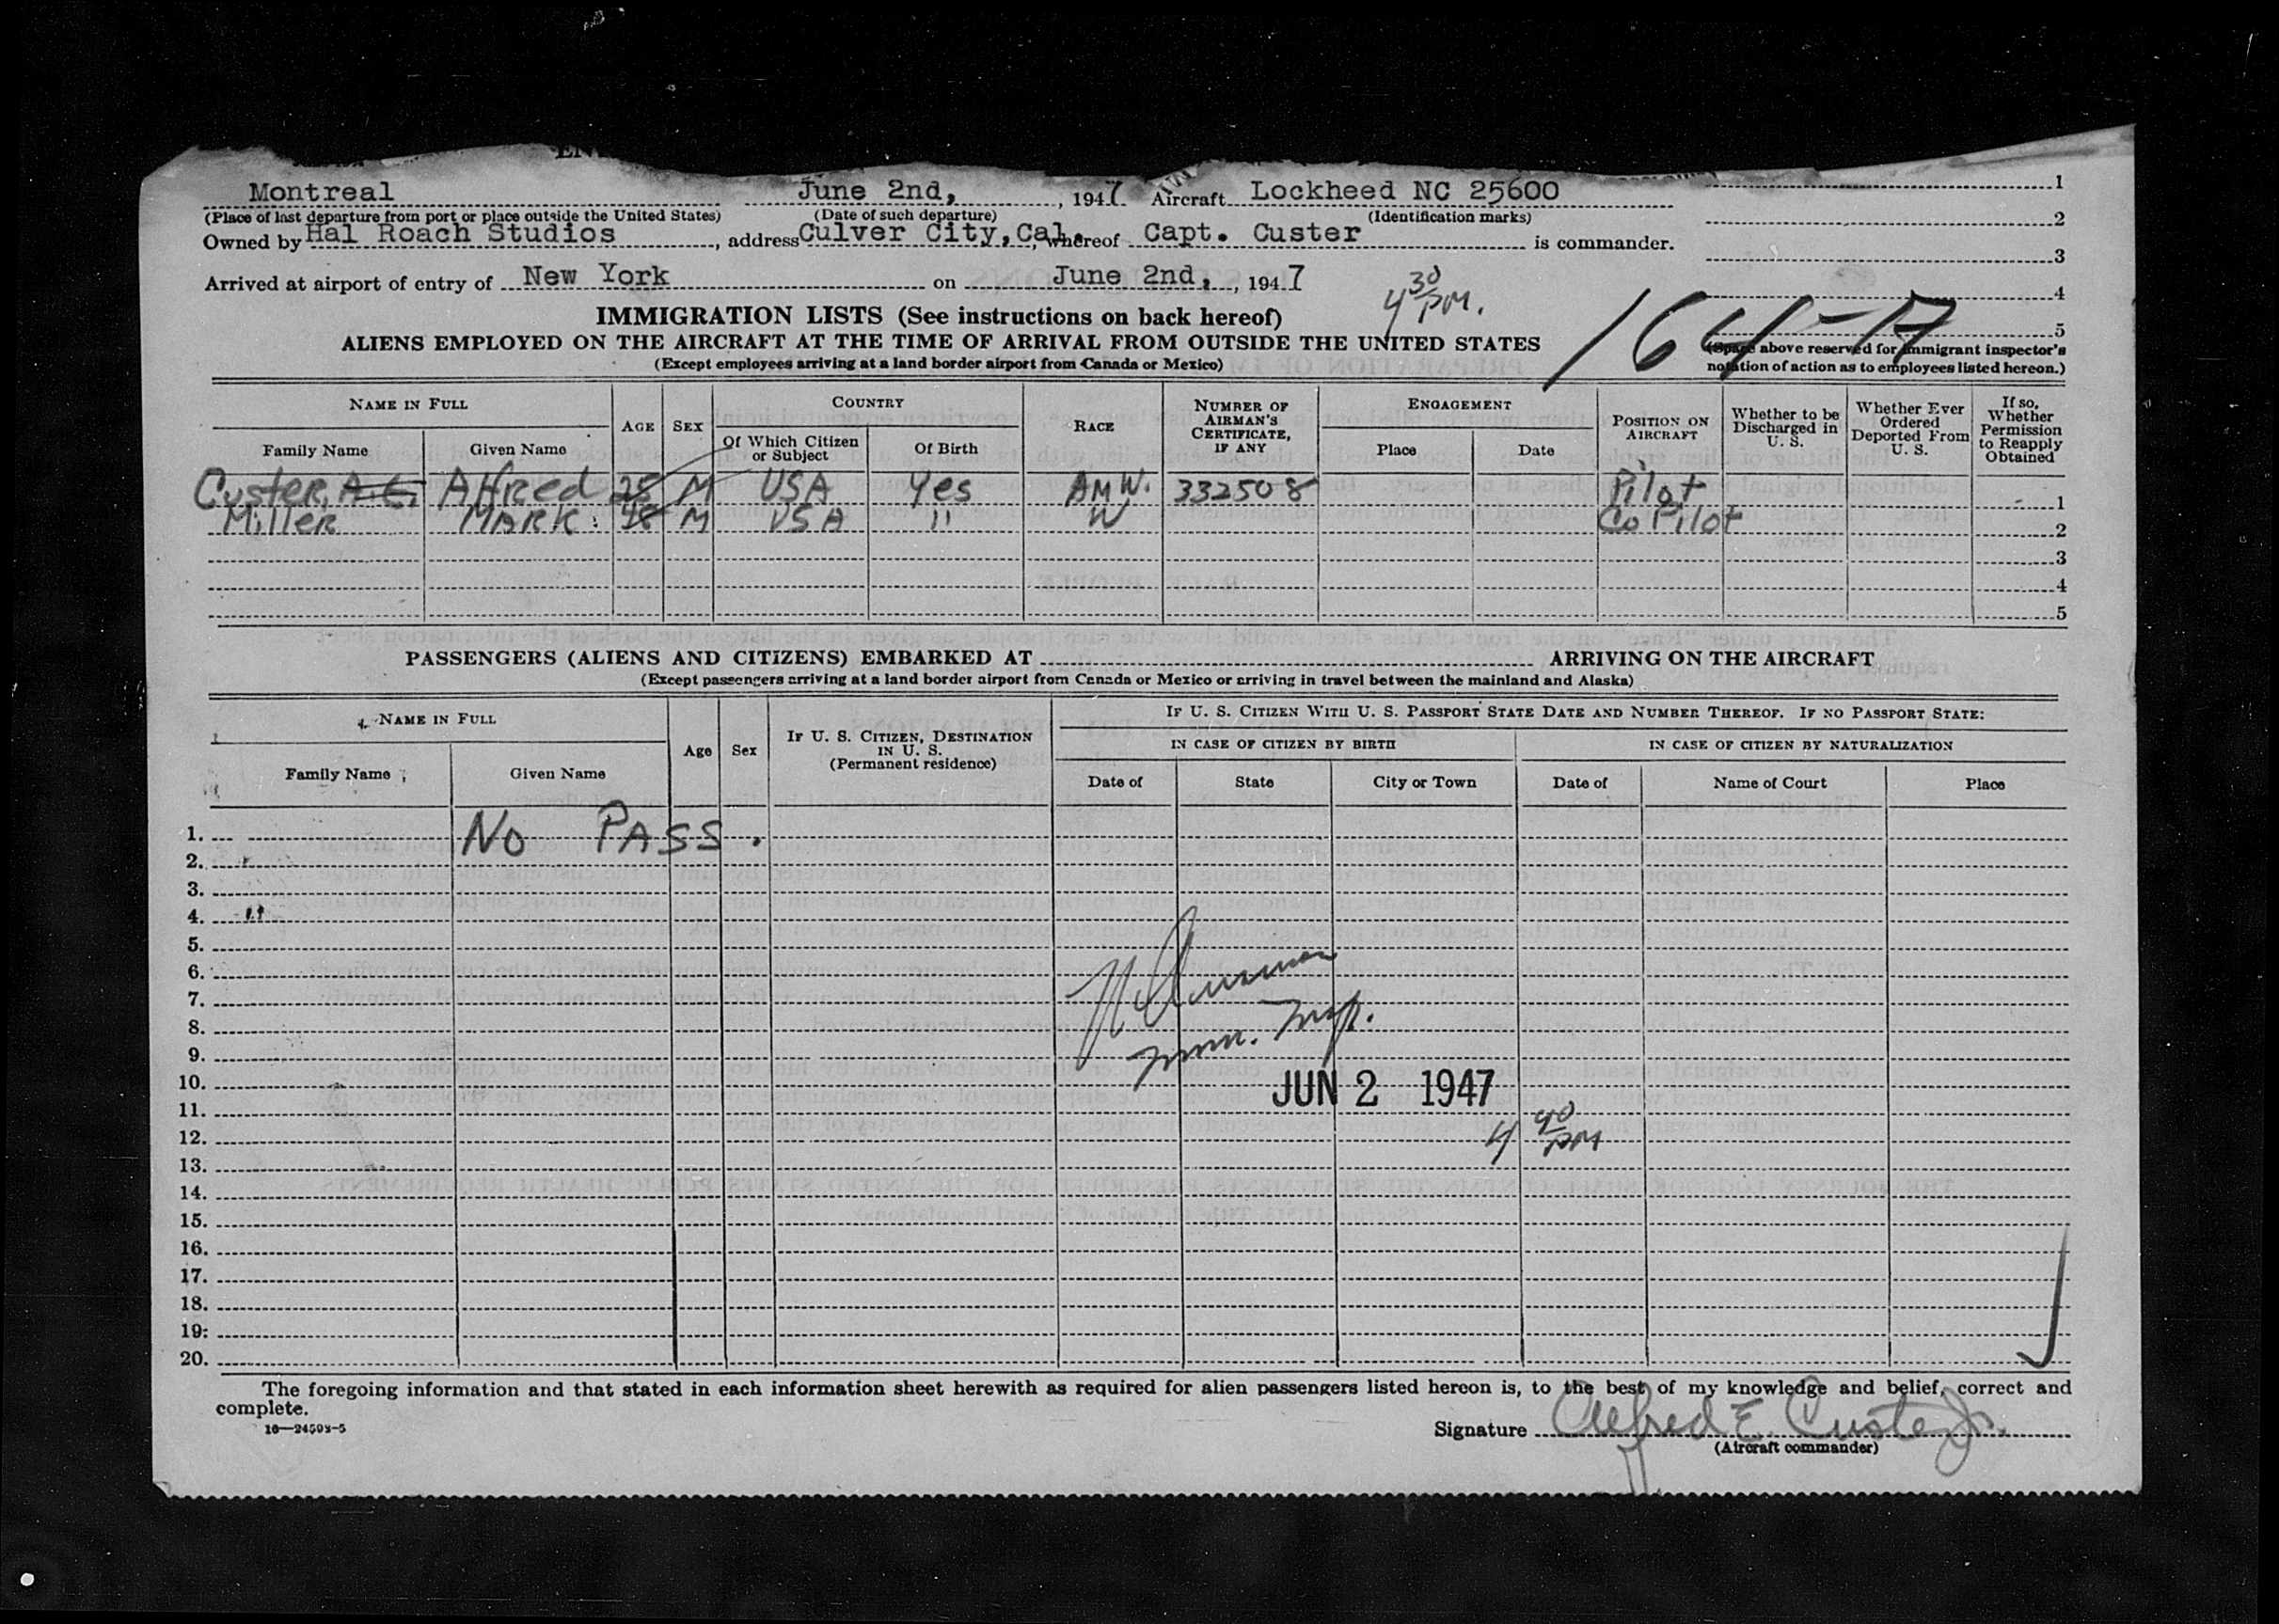 Montreal June 2nd, , 1947 Aircraft Lockheed NC 25600 1
(Place of last departure from port or place outside the United States) (Date of such departure) (Identification marks) 2
Owned by Hal Roach Studios , address Culver City, Cal., whereof Capt. Custer is commander.
3
Arrived at airport of entry of New York on June 2nd, , 1947
4 30 PM.
4
164-17
5
IMMIGRATION LISTS (See instructions on back hereof)
ALIENS EMPLOYED ON THE AIRCRAFT AT THE TIME OF ARRIVAL FROM OUTSIDE THE UNITED STATES
(Except employees arriving at a land border airport from Canada or Mexico)
(Space above reserved for immigrant inspector's
notation of action as to employees listed hereon.)
NAME IN FULL
Family Name Given Name
AGE SEX
COUNTRY
Of Which Citizen or Subject Of Birth
RACE
NUMBER OF AIRMAN'S CERTIFICATE, IF ANY
ENGAGEMENT
Place Date
POSITION ON AIRCRAFT
Whether to be Discharged in U. S.
Whether Ever Ordered Deported From U. S.
If so, Whether Permission to Reapply Obtained
Custer, A.E. Alfred 25 M USA Yes AM W. 332508 Pilot 1
Miller MARK 48 M USA " W Co Pilot 2
3
4
5
PASSENGERS (ALIENS AND CITIZENS) EMBARKED AT ARRIVING ON THE AIRCRAFT
(Except passengers arriving at a land border airport from Canada or Mexico or arriving in travel between the mainland and Alaska)
NAME IN FULL
Family Name Given Name
Age Sex
IF U. S. CITIZEN, DESTINATION IN U. S.
(Permanent residence)
IF U. S. CITIZEN WITH U. S. PASSPORT STATE DATE AND NUMBER THEREOF. IF NO PASSPORT STATE:
IN CASE OF CITIZEN BY BIRTH IN CASE OF CITIZEN BY NATURALIZATION
Date of State City or Town Date of Name of Court Place
1. No PASS.
2.
3.
4.
5.
6.
7.
8.
Imm. Insp.
9.
10.
JUN 2 1947
11.
4 40 PM
12.
13.
14.
15.
16.
17.
18.
19.
20.
The foregoing information and that stated in each information sheet herewith as required for alien passengers listed hereon is, to the best of my knowledge and belief, correct and
complete.
16—24503-5
Signature Alfred E. Custer Jr.
(Aircraft commander)